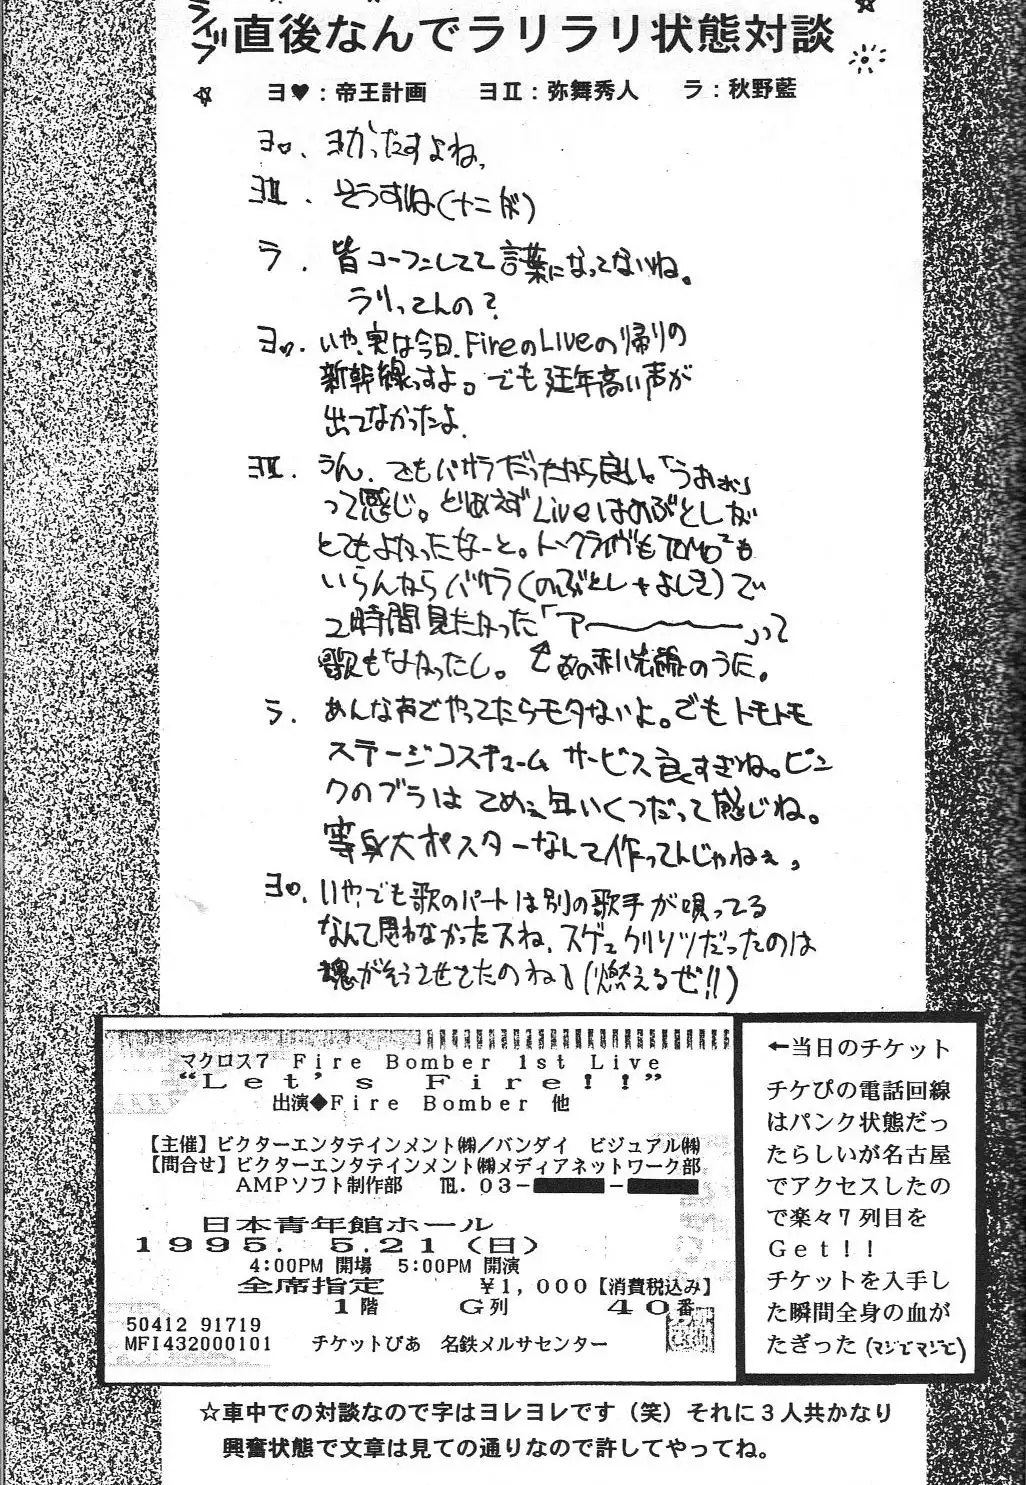 ライブ直後なんでラリラリ状態対談
ヨ♥：帝王計画　ヨⅡ：弥舞秀人　ラ：秋野藍
ヨ♥. ヨかったすよね、
ヨⅡ. そうすね(ナニが)
ラ. 皆コーフンしてて言葉になってないね。
ラリってんの?
ヨ♥. いや、実は今日、FireのLiveの帰りの
新幹線っすよ。でも延年高い声が
出てなかったよ.
ヨⅡ. うん、でもバサラだったから良い。「うおぉ」
って感じ。とりあえずLiveはのぶとしが
とてもよかったなーと。トークライヴもTOMO²も
いらんからバサラ(のぶとし+よしき)で
2時間見たかった「アーーーー」って
歌もなかったし。↑あの利光節のうた。
ラ. あんな声でやってたらモタないよ。でもトモトモ
ステージコスチューム サービス良すぎね。ピン
クのブラは てめェ年いくつだって感じね。
等身大ポスターなんて作ってんじゃねぇ、
ヨ♥. いや、でも歌のパートは別の歌手が唄ってる
なんて思わなかったスね、スゲェクリソツだったのは
魂がそうさせたのね」(燃えるぜ!!)
マクロス7 Fire Bomber 1st Live
“Let's Fire!!”
出演◆Fire Bomber 他
【主催】ビクターエンタテインメント㈱／バンダイ ビジュアル㈱
【問合せ】ビクターエンタテインメント㈱メディアネットワーク部
AMPソフト制作部 ℡. 03-
日本青年館ホール
1995. 5.21 (日)
4:00PM 開場 5:00PM 開演
全席指定 ￥1,000【消費税込み】
1階 G列 40番
50412 91719
MFI432000101 チケットぴあ 名鉄メルサセンター
←当日のチケット
チケぴの電話回線
はパンク状態だっ
たらしいが名古屋
でアクセスしたの
で楽々7列目を
Get!!
チケットを入手し
た瞬間全身の血が
たぎった(マジでマジで)
☆車中での対談なので字はヨレヨレです（笑）それに3人共かなり
興奮状態で文章は見ての通りなので許してやってね。